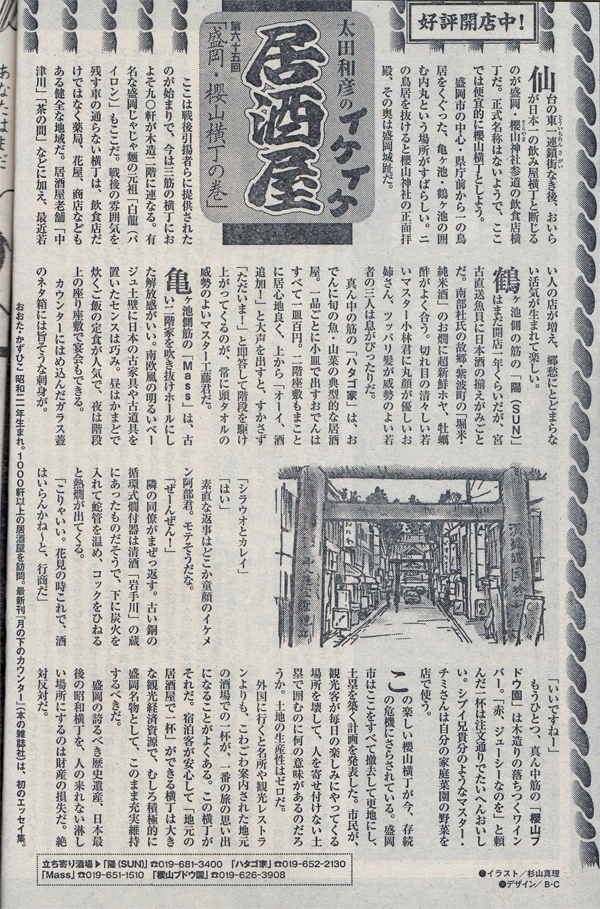 好評開店中！
太田和彦の
イケイケ
居酒屋
第六十五回
「盛岡・櫻山横丁の巻」
仙台の東一連鎖街なき後、おいら
が日本一の飲み屋横丁と断じる
のが盛岡、櫻山神社参道の飲食店横
丁だ。正式名称はないようで、ここ
では便宜的に櫻山横丁としよう。
盛岡市の中心・県庁前から一の鳥
居をくぐった、亀ヶ池・鶴ヶ池の囲
む内丸という場所がすばらしい。二
の鳥居を抜けると櫻山神社の正面拝
殿、その奥は盛岡城趾だ。
ここは戦後引揚者らに提供された
のが始まりで、今は三筋の横丁にお
よそ九〇軒が木造二階に連なる。有
名な盛岡じゃじゃ麺の元祖「白龍（パ
イロン）」もここだ。戦後の雰囲気を
残す車の通らない横丁は、飲食店だ
けではなく薬局、花屋、商店なども
ある健全な地域だ。居酒屋老舗「中
津川」「茶の間」などに加え、最近若
い人の店が増え、郷愁にとどまらな
い活気が生まれて楽しい。
鶴ヶ池側の筋の「陽（SUN）」
はまだ開店一年くらいだが、宮
古直送魚貝に日本酒の揃えがみごと
だ。南部杜氏の故郷・紫波町の「堀米・
純米酒」のお燗に超新鮮ホヤ、牡蠣
酢がよく合う。切れ目の清々しい若
いマスター小林君に丸顔が優しいお
姉さん、ツッパリ髪が威勢のよい若
者の三人は息がぴったりだ。
真ん中の筋の「ハタゴ家」は、お
でんに旬の魚・山菜の典型的な居酒
屋。一品ごとに小皿で出すおでんは
すべて一皿百円。二階座敷もまこと
に居心地良く、上から「オーイ、酒
追加ー」と大声を出すと、すかさず
「ただいまー」と即答して階段を駆け
上がってくるのが、常に頭タオルの
威勢のよいマスター工藤君だ。
亀ヶ池側筋の「Mass」は、古
い二階家を吹き抜けホールにし
た解放感がいい。南欧風の明るいベー
ジュ土壁に日本の古家具や古道具を
置いたセンスは巧み。昼はかまどで
炊くご飯の定食が人気で、夜は階段
上の座り座敷で宴会もできる。
カウンターにはめ込んだガラス蓋
のネタ箱には旨そうな刺身が。
「シラウオとカレイ」
「はい」
素直な返事はどこか童顔のイケメ
ン阿部君。モテそうだな。
「ぜーんぜん！」
隣の同僚がまぜっ返す。古い銅の
循環式燗付器は清酒「岩手川」の蔵
にあったものだそうで、下に炭火を
入れて蛇管を温め、コックをひねる
と熱燗が出てくる。
「こりゃいい。花見の時これで、酒
はいらんかね〜と、行商だ」
「いいですねー」
もうひとつ、真ん中筋の「櫻山ブ
ドウ園」は木造りの落ちつくワイン
バー。「赤、ジューシーなのを」と頼
んだ一杯は注文通りでたいへんおいし
い。シブイ兄貴分のようなマスター・
チミさんは自分の家庭菜園の野菜を
店で使う。
この楽しい櫻山横丁が今、存続
の危機にさらされている。盛岡
市はここをすべて撤去して更地にし、
土塁を築く計画を発表した。市民が、
観光客が毎日の楽しみにやってくる
場所を壊して、人を寄せ付けない土
塁で囲むのに何の意味があるのだろ
うか。土地の生産性はゼロだ。
外国に行くと名所や観光レストラ
ンよりも、こわごわ案内された地元
の酒場での一杯が、一番の旅の思い出
になることがよくある。この横丁が
それだ。宿泊客が安心して「地元の
居酒屋で一杯」ができる横丁は大き
な観光経済資源で、むしろ積極的に
盛岡名物として、このまま充実維持
するべきだ。
盛岡の誇るべき歴史遺産、日本最
後の昭和横丁を、人の来れない淋し
い場所にするのは財産の損失だ。絶
対反対だ。
おおた・かずひこ 昭和二一年生まれ。1000軒以上の居酒屋を訪問。最新刊『月の下のカウンター』（本の雑誌社）は、初のエッセイ集。
立ち寄り酒場▶「陽（SUN）」☎019-681-3400 「ハタゴ家」☎019-652-2130
「Mass」☎019-651-1510 「櫻山ブドウ園」☎019-626-3908
●イラスト／杉山真理
●デザイン／B・C